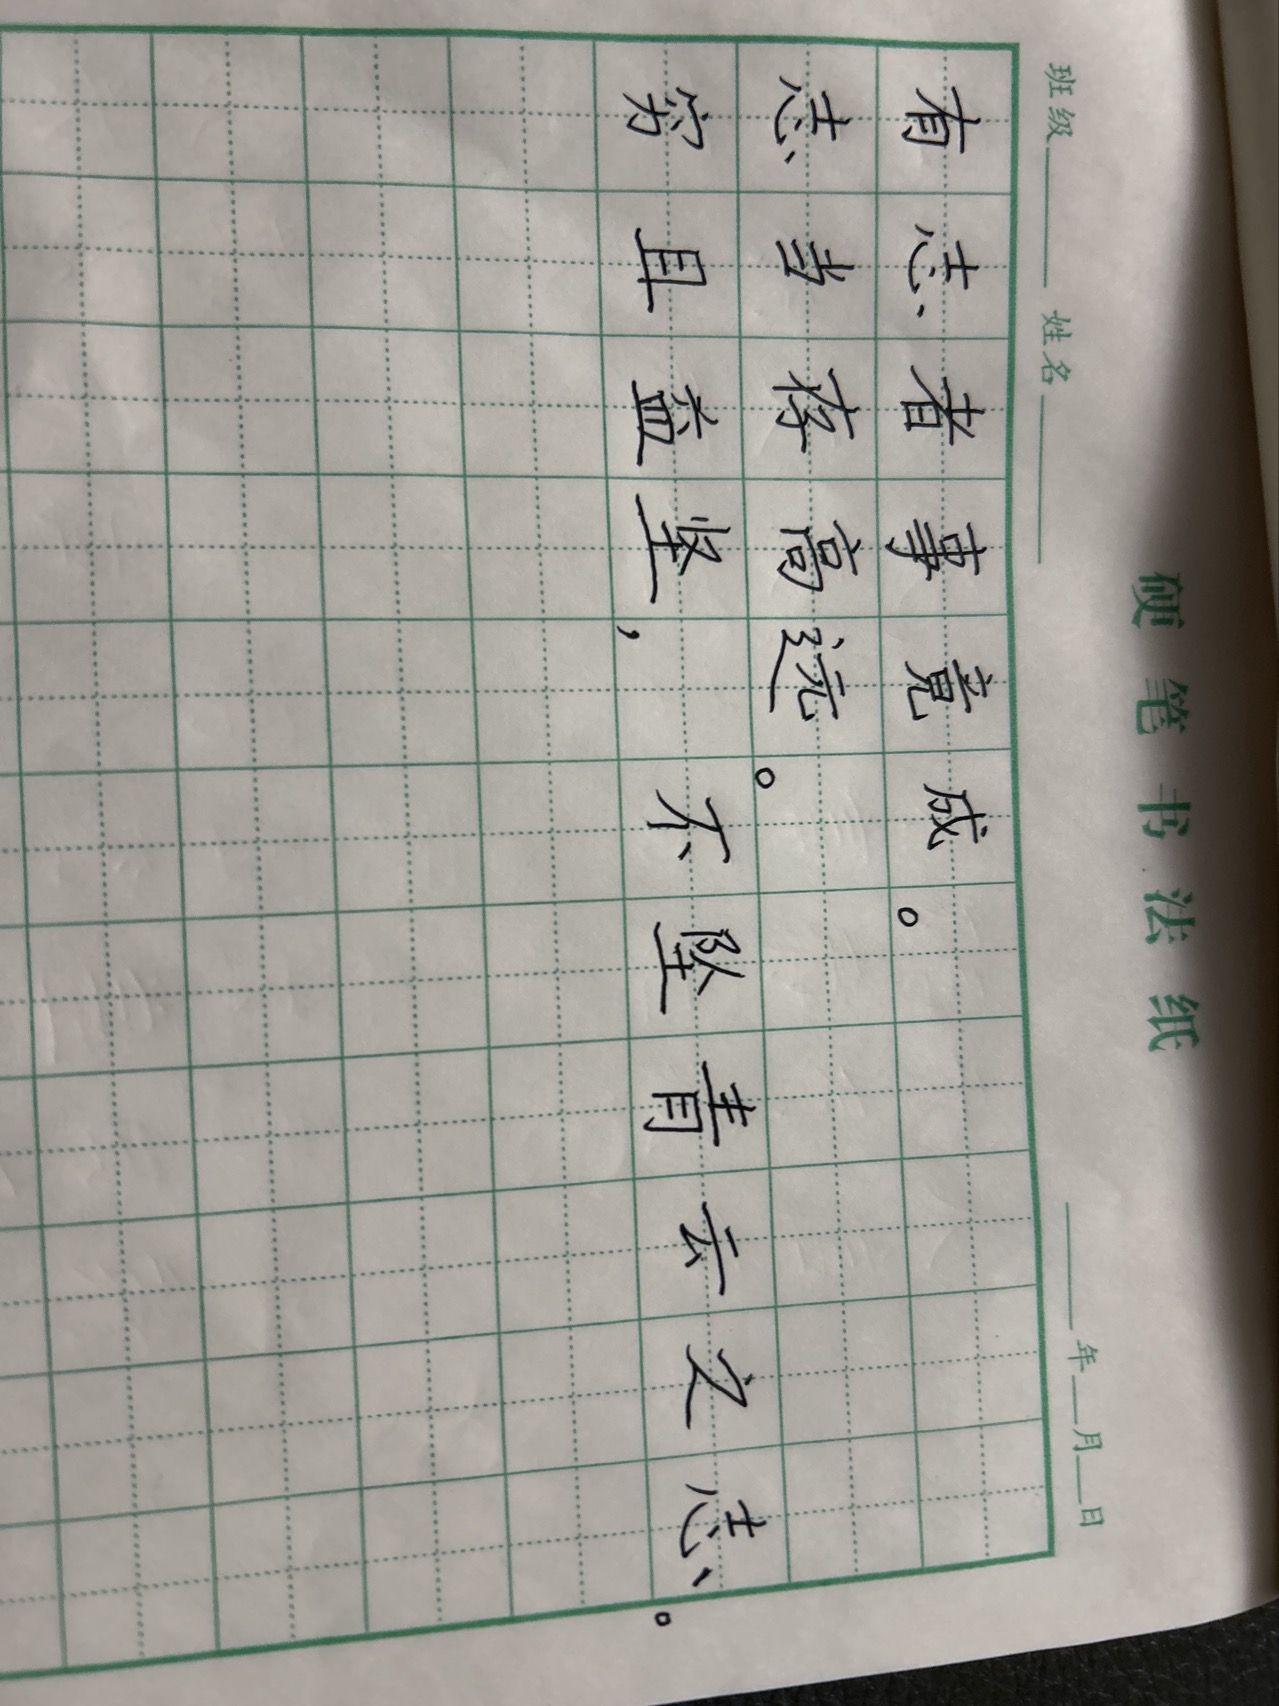 硬笔书法纸
班级 姓名 年 月 日
有志者事竟成。
志当存高远。
穷且益坚，不坠青云之志。